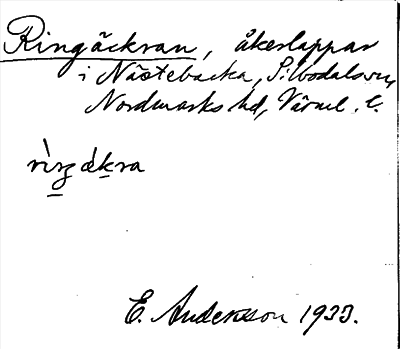 Ringäckran, åkerlappar
i Nästebacka, Silbodals sn,
Nordmarks hd, Värml. l.
rìŋ ækra
E. Andersson 1933.